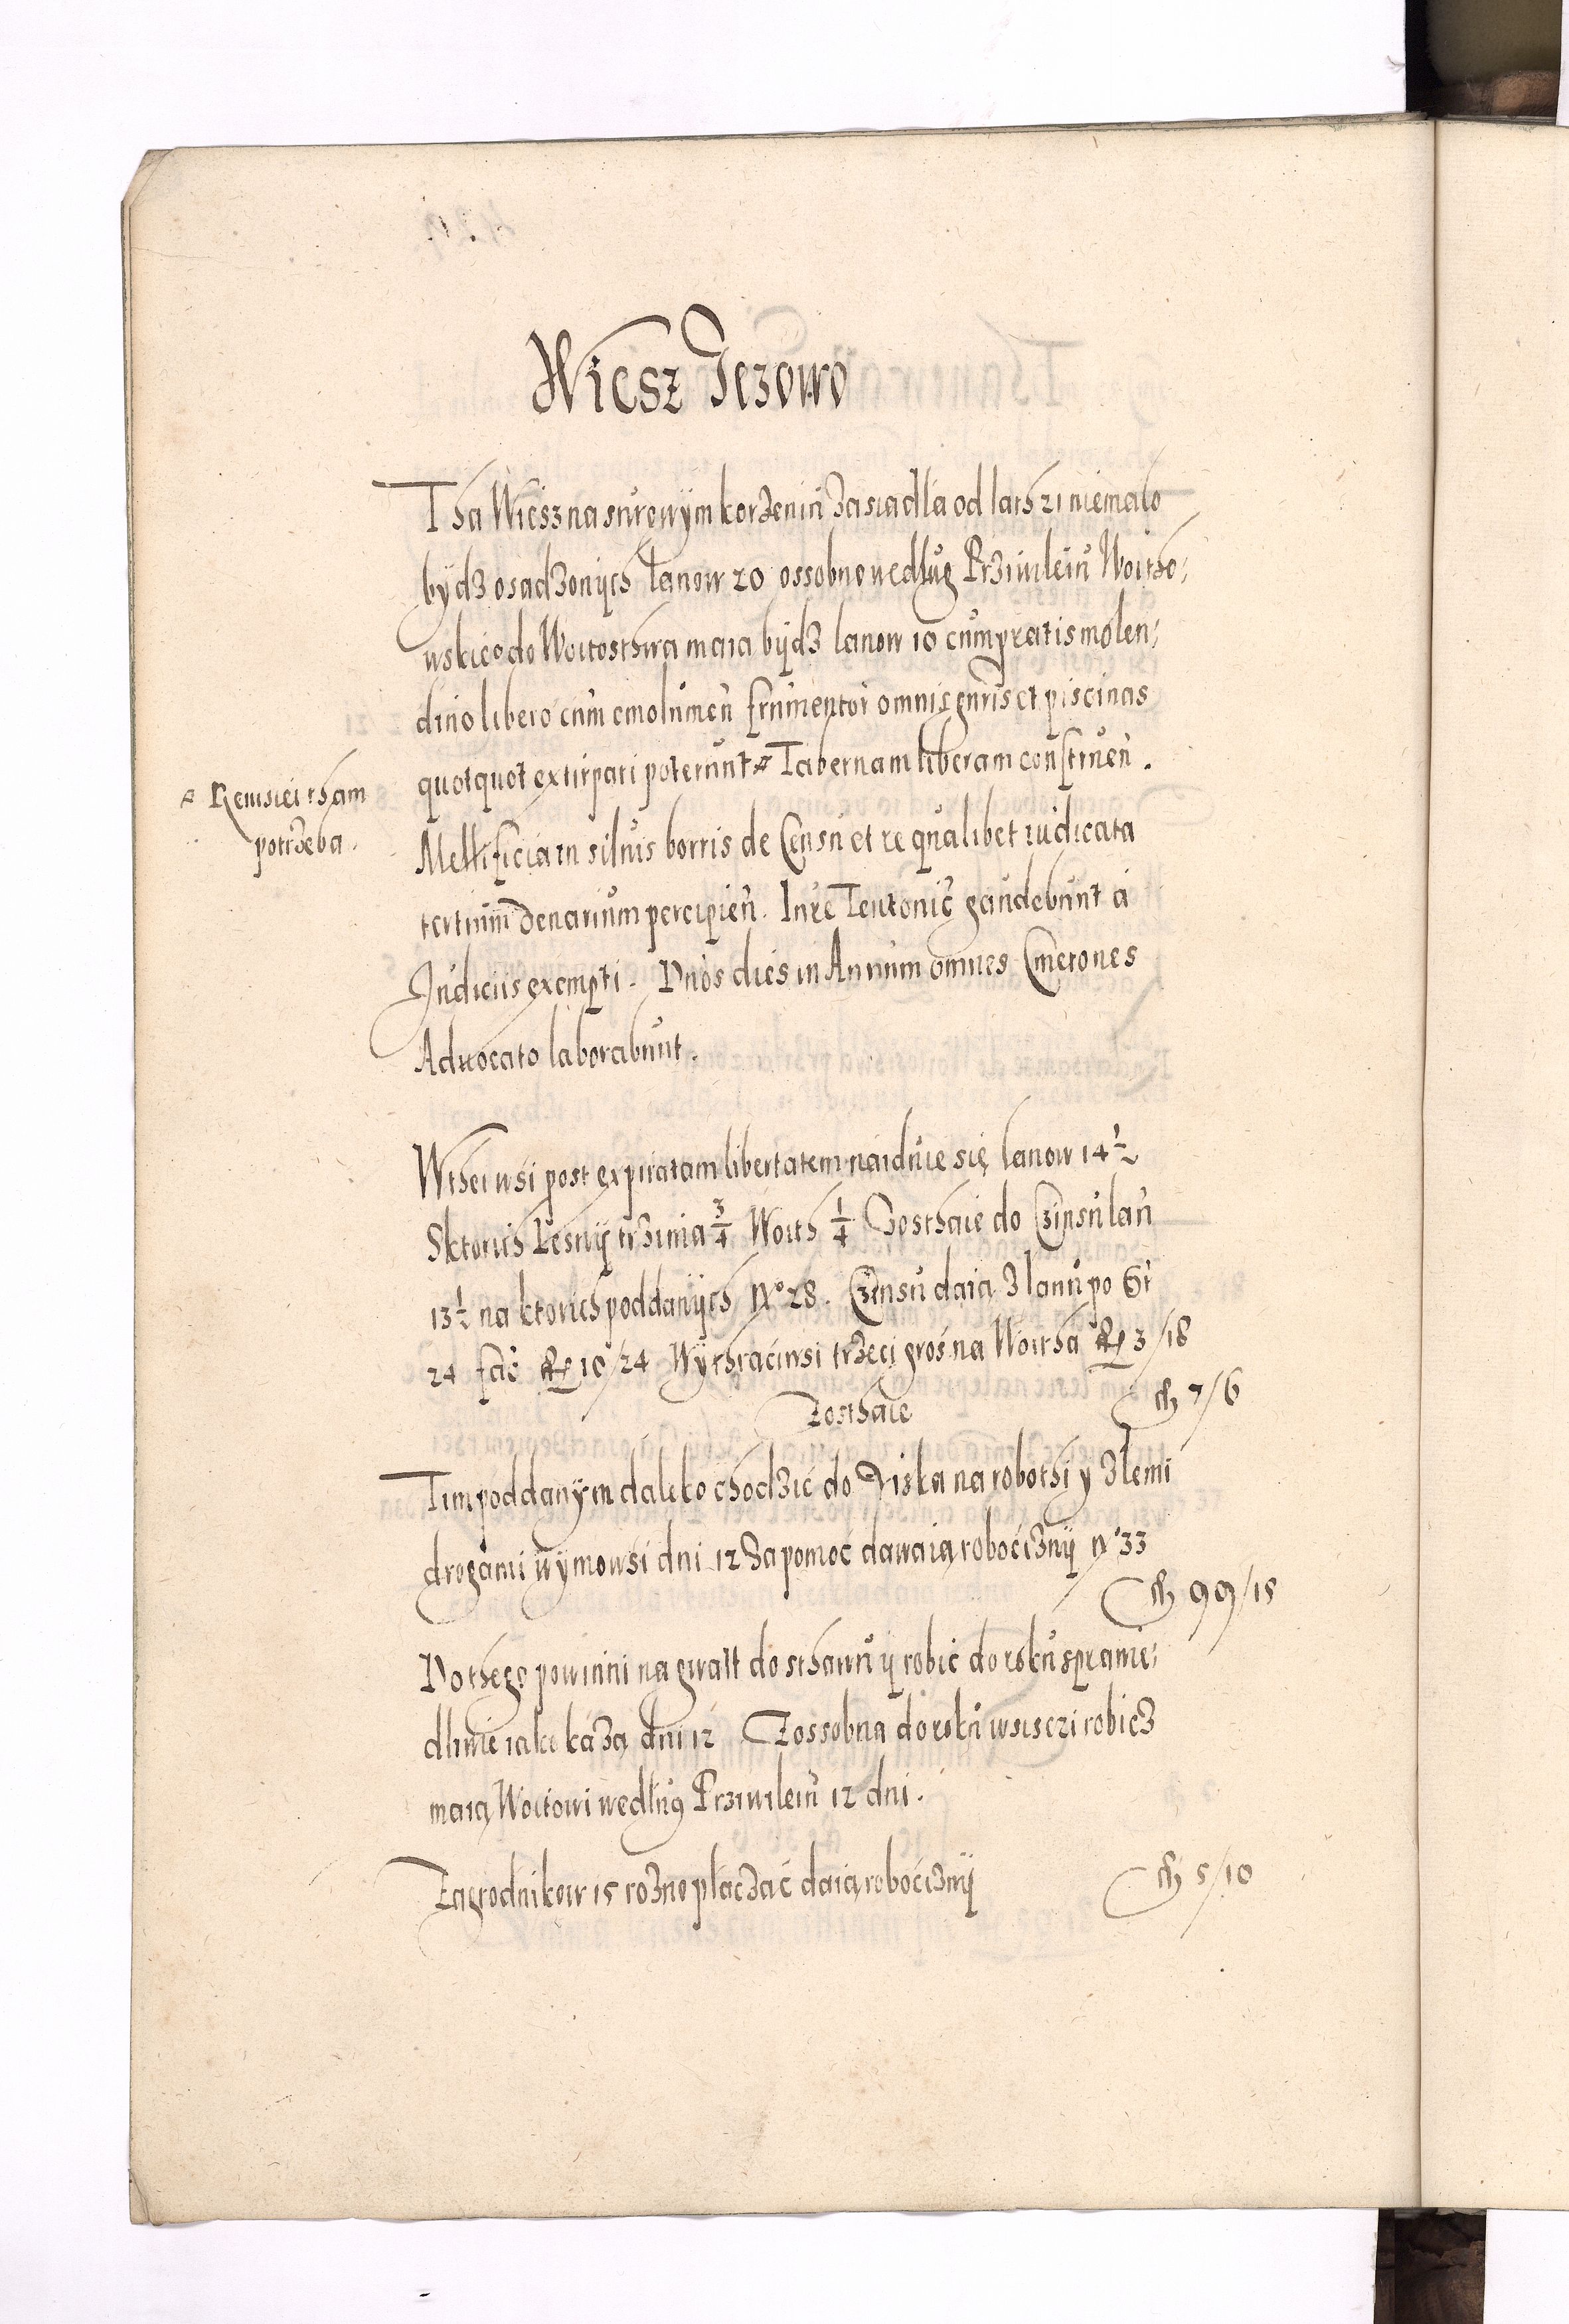 Wiesz Jezowo
Tha Wiesz na surowym korzeniu zasiadla od lath 21 niemalo
bydz osadzonych Lanow 20 ossobno wedlug Przivileiu Woitho:
wskieo do Woitosthwa maia bydz lanow 10 cum pratis molen:
dino libero cum emolumen frumentor omnis gnris et piscinas
quotquot extirpari poterunt Tabernam liberam construen.
Rewisiei tham
potrzeba.
Mellificia in siluis borris de Censu et re qualibet iudicata
tertium denarium percipien. Iure Teutonic gaudebunt a
Judiciis exempti. Duos dies in Annum omnes Cmetones
Aduocato laborabunt.
Wthei wsi post expiratam libertatem naiduie się lanow 14½
Sktorich Lesny trzima ¾ Woith ¼ Zosthaie do Czinsu lan
13½ na ktorich poddanych No 28. Czinsu daia z lanu po Gr
24 fac 10/24 Wythraciwsi trzeci gros na Woitha 3/18
Zosthaie fl 7/6
Tim poddanym daleko chodzic do na robothi y zlemi
drogami wymowsi dni 12 Za pomoc dawaią robocizny No 33
fl 99/15
Do thego powinni na gwalt do sthawu y robic do roku sprawie:
dliwie iako kaza dni 12 Zossobna do roku wsisczi robicz
maią Woitowi wedlug Przivileiu 12 dni.
Zagrodnikow 15 rozno placzac daią robocizny fl 5/10